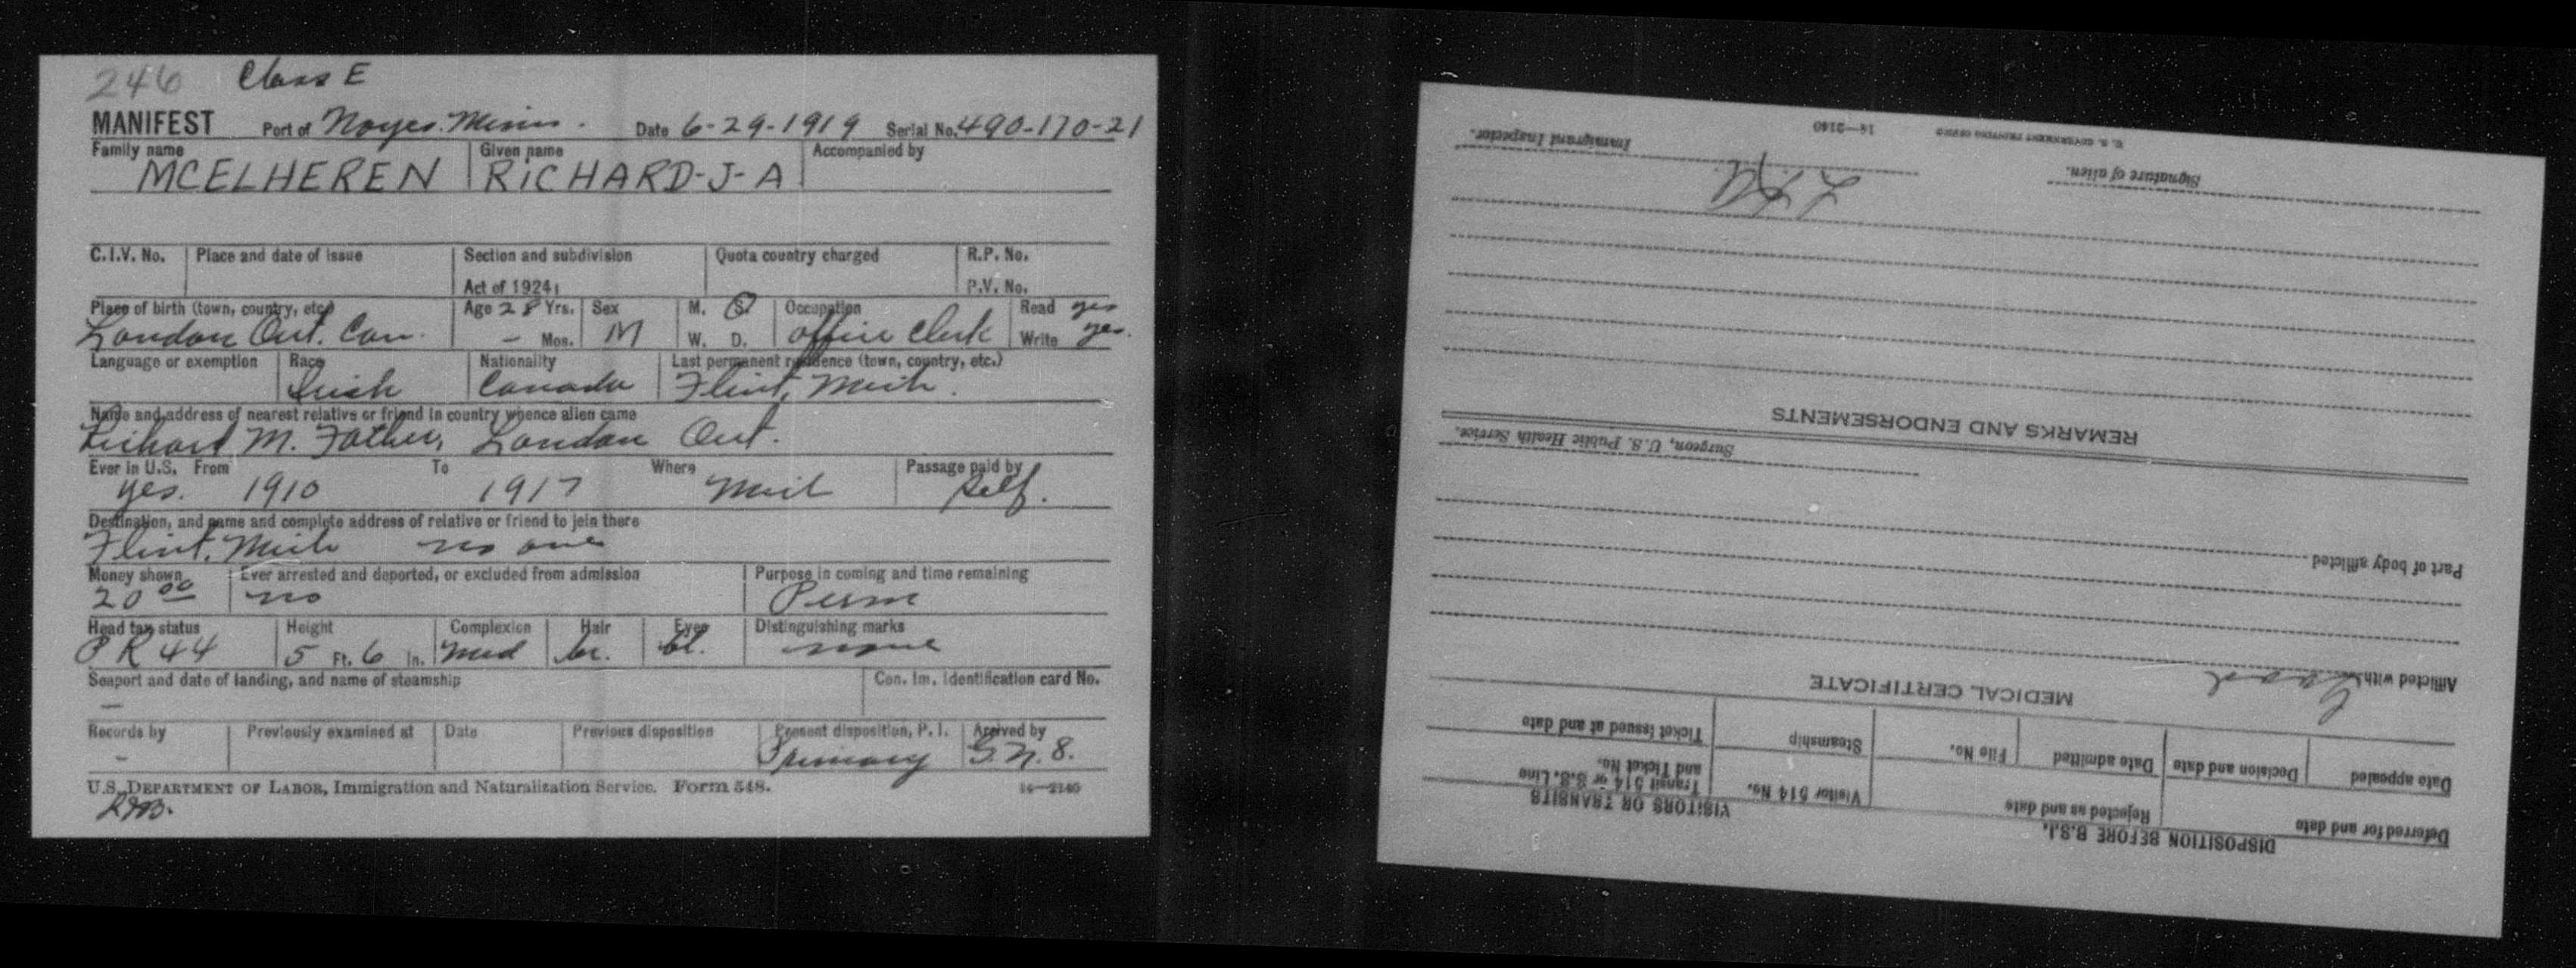 246 Class E
MANIFEST Port of Noyes. Minn. Date 6-29-1919 Serial No. 490-170-21
Family name Given name Accompanied by
MCELHEREN RICHARD-J-A
C.I.V. No. Place and date of issue Section and subdivision Quota country charged R.P. No.
Act of 1924 P.V. No.
Place of birth (town, country, etc.) Age 28 Yrs. Sex M. S. Occupation Read yes
London Ont. Can. - Mos. M W. D. office Clerk Write yes.
Language or exemption Race Nationality Last permanent residence (town, country, etc.)
Irish Canada Flint, Mich.
Name and address of nearest relative or friend in country whence alien came
Richard M. Father, London Ont.
Ever in U.S. From To Where Passage paid by
yes. 1910 1917 Mich Self.
Destination, and name and complete address of relative or friend to join there
Flint, Mich no one
Money shown Ever arrested and deported, or excluded from admission Purpose in coming and time remaining
20 00 no Perm
Head tax status Height Complexion Hair Eyes Distinguishing marks
P R 44 5 Ft. 6 In. Med br. bl. none
Seaport and date of landing, and name of steamship Con. Im. Identification card No.
-
Records by Previously examined at Date Previous disposition Present disposition, P. I. Arrived by
- Primary G.N. 8.
U.S. DEPARTMENT OF LABOR, Immigration and Naturalization Service. Form 548. 14—2140
DISPOSITION BEFORE B.S.I. VISITORS OR TRANSITS
Deferred for and date Rejected as and date Visitor 514 No. Transit 514 or S.S. Line and Ticket No.
Date appealed Decision and date Date admitted File No. Steamship Ticket issued at and date
MEDICAL CERTIFICATE
Afflicted with Good
Part of body afflicted
Surgeon, U.S. Public Health Service.
REMARKS AND ENDORSEMENTS
Signature of alien. Immigrant Inspector.
U. S. GOVERNMENT PRINTING OFFICE 14—2140